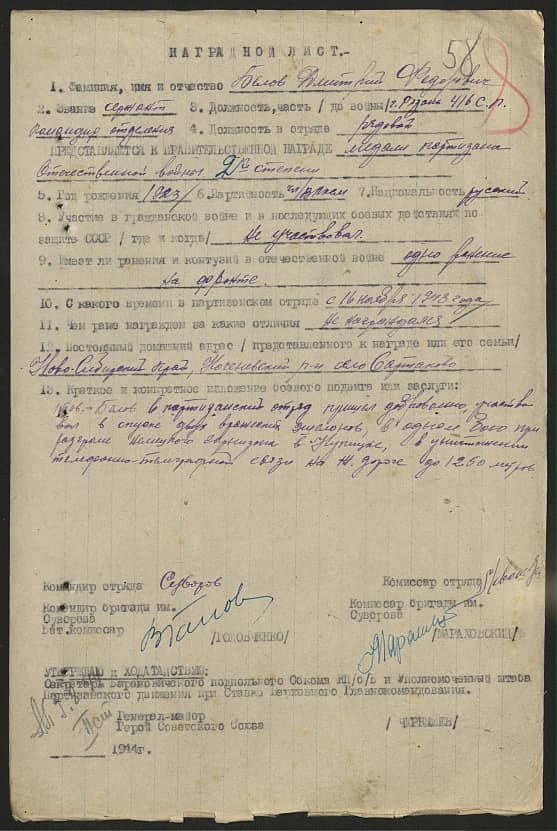 58
НАГРАДНОЙ ЛИСТ.-
1. Фамилия, имя и отчество Белов Дмитрий Федорович
2. Звание сержант 3. Должность, часть / до войны/ г. Рязань 416 с.п.
командир отделения 4. Должность в отряде рядовой
ПРЕДСТАВЛЯЕТСЯ К ПРАВИТЕЛЬСТВЕННОЙ НАГРАДЕ медали партизана
Отечественной войны 2й степени
5. Год рождения 1923 6. Партийность чл. ВЛКСМ 7. Национальность русский
8. Участие в гражданской войне и в последующих боевых действиях по
защите СССР / где и когда/ не участвовал.
9. Имеет ли ранения и контузии в отечественной войне одно ранение
на фронте.
10. С какого времени в партизанском отряде с 16 ноября 1943 года
11. Чем ранее награжден за какие отличия Не награждался
12. Постоянный домашний адрес / представленного к награде или его семьи/
Ново-Сибирский край, р-н село
13. Краткое и конкретное изложение боевого подвига или заслуги:
Белов в партизанский отряд пришел добровольно, участво
вал в спуске двух вражеских эшелонов, в одном бою при
разгроме немецкого гарнизона в в уничтожении
телефонно-телеграфной связи на ж. дороге до 1250 метров
Командир отряда Суворов Комиссар отряда
Командир бригады им. Комиссар бригады им.
Суворова Суворова
Бат. комиссар /ГОЛОВЧЕНКО/ /МАРАХОВСКИЙ/
УТВЕРЖДАЮ и ХОДАТАЙСТВУЮ:
Секретарь Барановичского подпольного Обкома КП/б/Б и Уполномоченный штаба
Партизанского движения при Ставке Верховного Главнокомандования.
Генерал-майор
Герой Советского Союза / ЧЕРНЫШЕВ/
1944г.